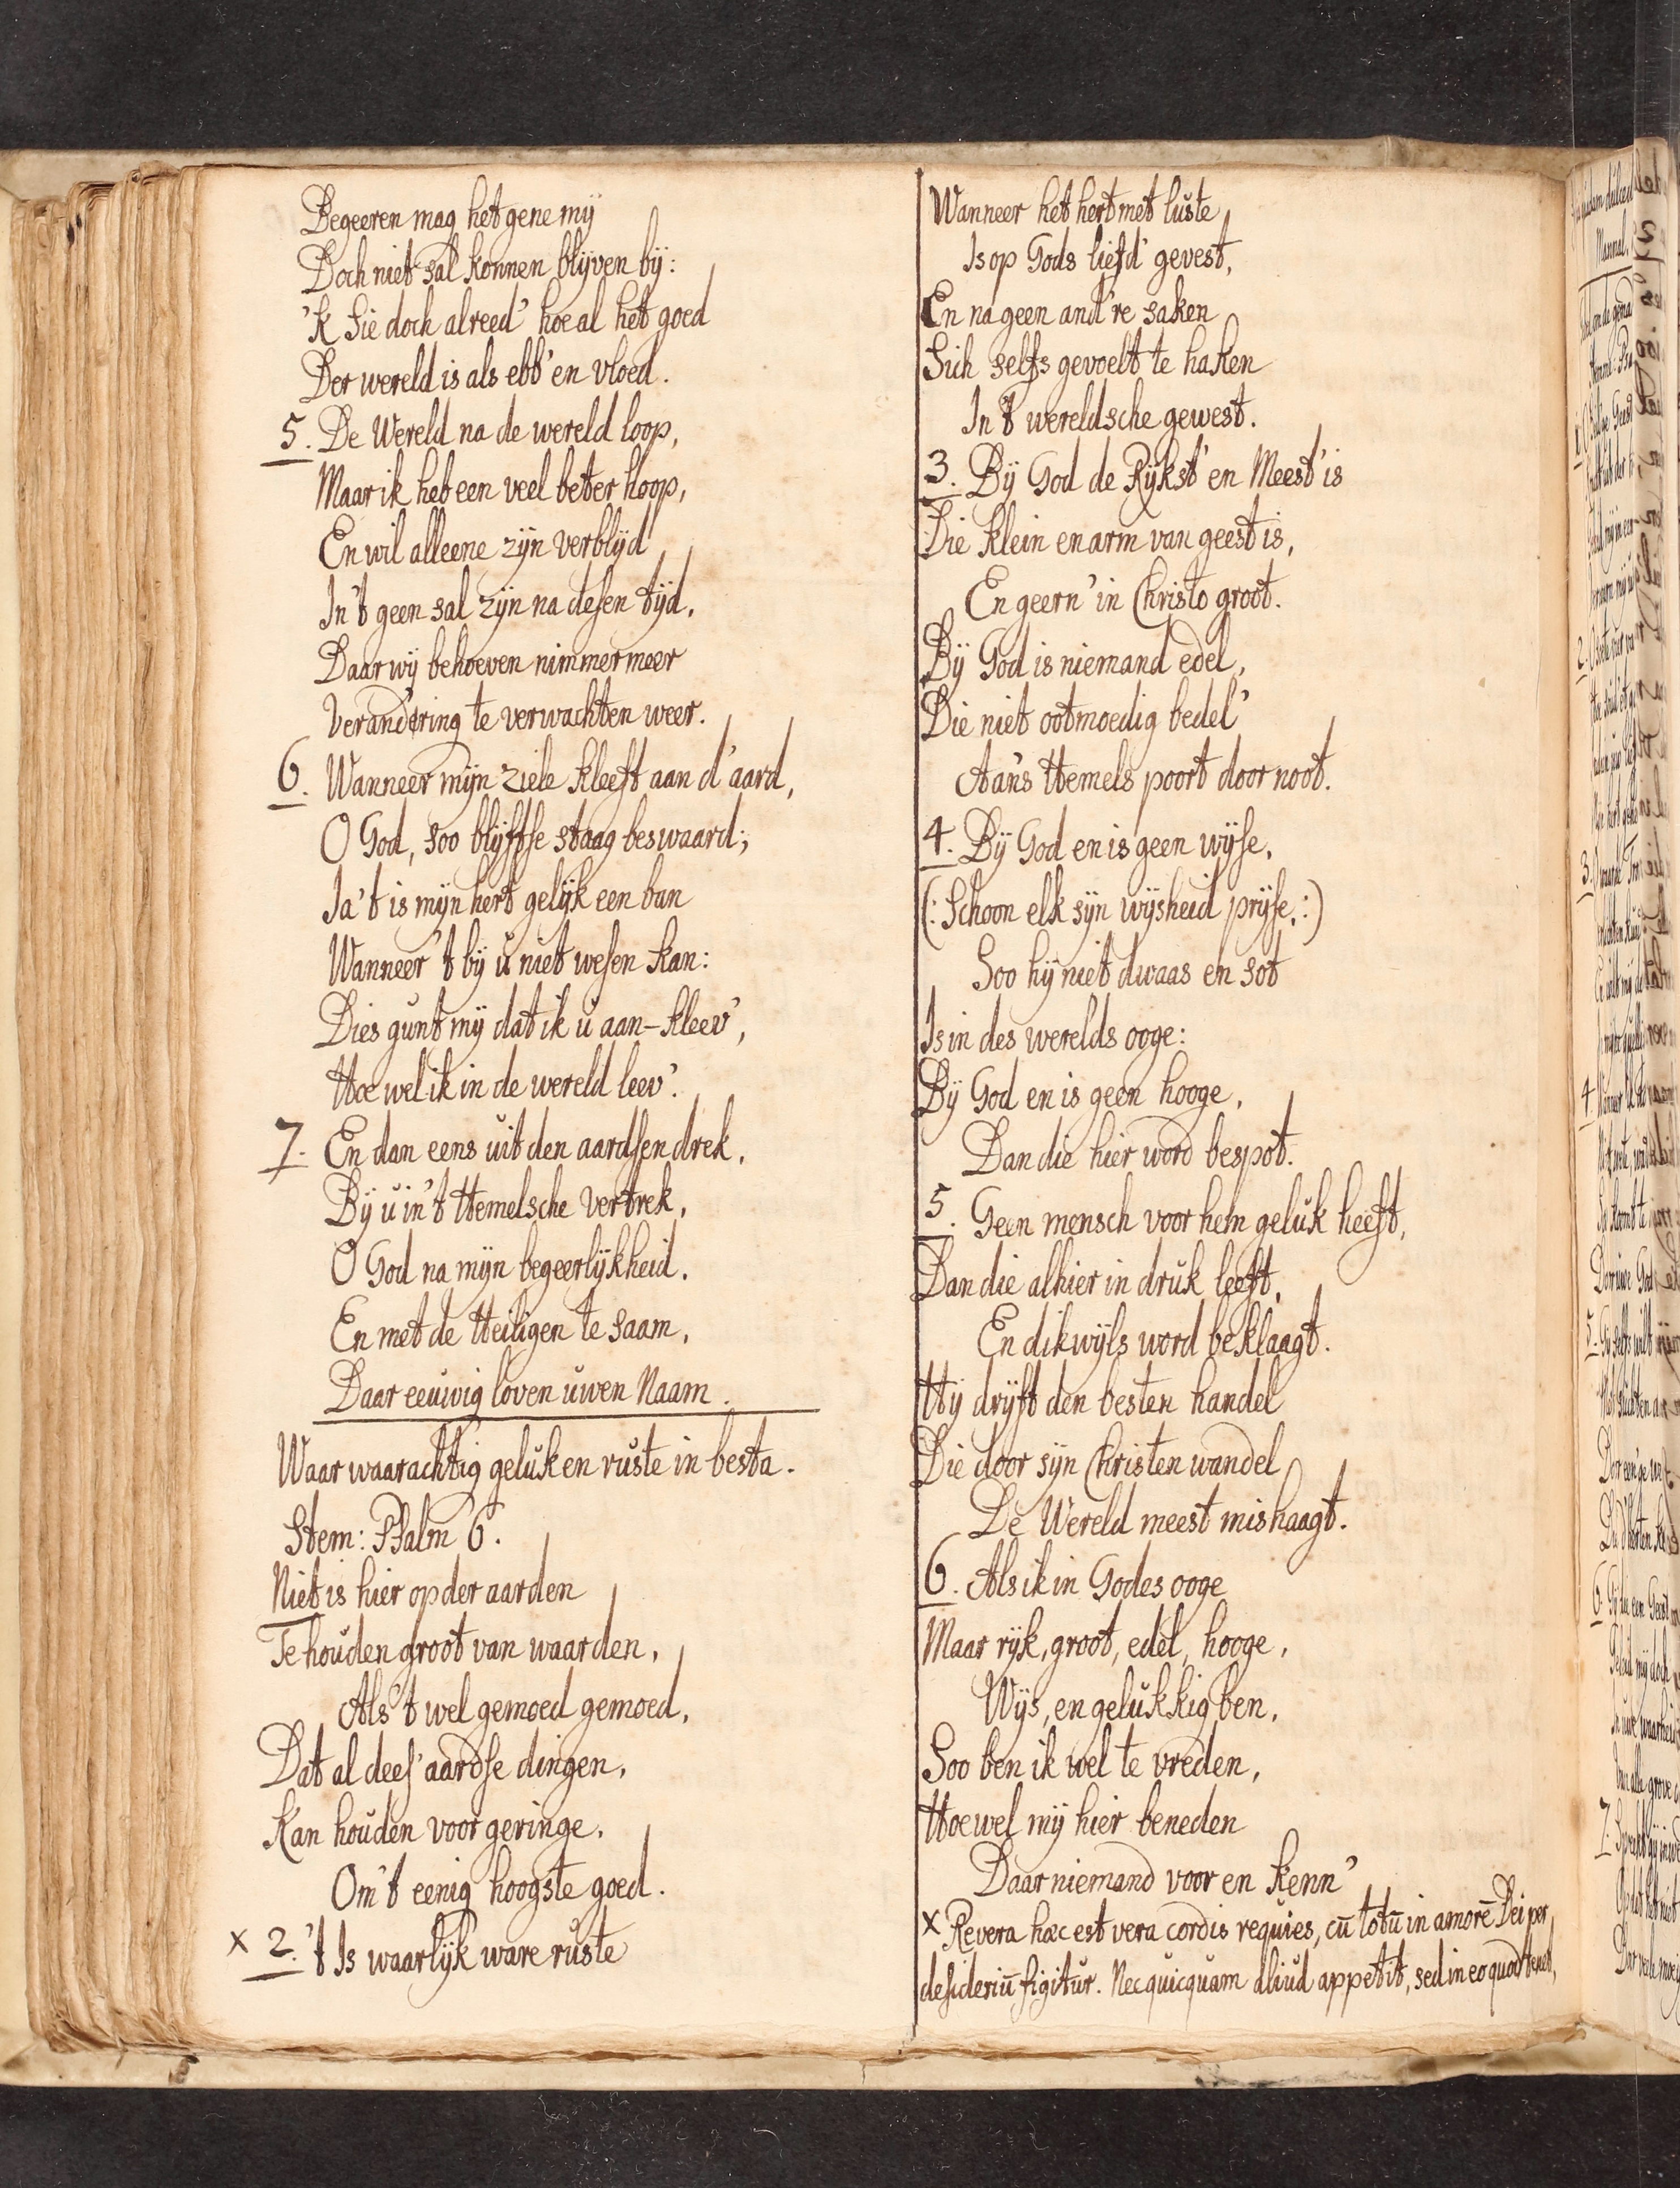 Begeeren mag het gene mij
Doch niet sal konnen blijven bij:
'k Sie doch alreed' hoe al het goed
Der wereld is als ebb' en vloed.
5. De Wereld na de wereld loop,
Maar ik heb een veel beter hoop,
En wil alleene zijn verblijd
In 't geen sal zijn na desen tijd,
Daar wij behoeven nimmermeer
Verand'ring te verwachten weer.
6. Wanneer mijn ziele kleeft aan d'aard,
O God, soo blijftse staag beswaard;
Ja 't is mijn hert gelijk een ban
Wanneer 't bij ŭ niet wesen kan:
Dies gunt mij dat ik ŭ aan-kleev',
Hoewel ik in de wereld leev'.
7. En dan eens uit den aardsen drek,
Bij ŭ in 't Hemelsche vertrek,
O God na mijn begeerlijkheid,
En met de Heiligen te saam,
Daar eeuwig loven ŭwen Naam.
Waar waarachtig gelŭk en rŭste in besta.
Stem: Psalm 6.
Niet is hier op der aarden
Te hoŭden groot van waarden,
Als 't wel gemoed gemoed,
Dat al dees' aardse dingen,
Kan hoŭden voor geringe,
Om 't eenig hoogste goed.
x 2. 't Is waarlijk ware rŭste
Wanneer het hert met lŭste
Is op Gods liefd' gevest,
En na geen and're saken
Sich selfs gevoelt te haken
In 't wereldsche gewest.
3. Bij God de Rijkst' en Meest' is
Die klein en arm van geest is,
En geern' in Christo groot.
Bij God is niemand edel,
Die niet ootmoedig bedel'
Aan's Hemels poort door noot.
4. Bij God en is geen wijse,
(: Schoon elk sijn wijsheid prijse, :)
Soo hij niet dwaas en sot
Is in des werelds ooge:
Bij God en is geen hooge,
Dan die hier word bespot.
5. Geen mensch voor hem gelŭk heeft,
Dan die alhier in drŭk leeft,
En dikwijls word beklaagt.
Hij drijft den besten handel
Die door sijn Christen wandel
De Wereld meest mishaagt.
6. Als ik in Godes ooge
Maar rijk, groot, edel, hooge,
Wijs, en gelŭkkig ben,
Soo ben ik wel te vreden,
Hoewel mij hier beneden
Daar niemand voor en kenn'
x Revera hæc est vera cordis requies, cū totū in amorē Dei per
desideriū figitŭr. Nec quicquam aliud appetit, sed in eo quod tenet,